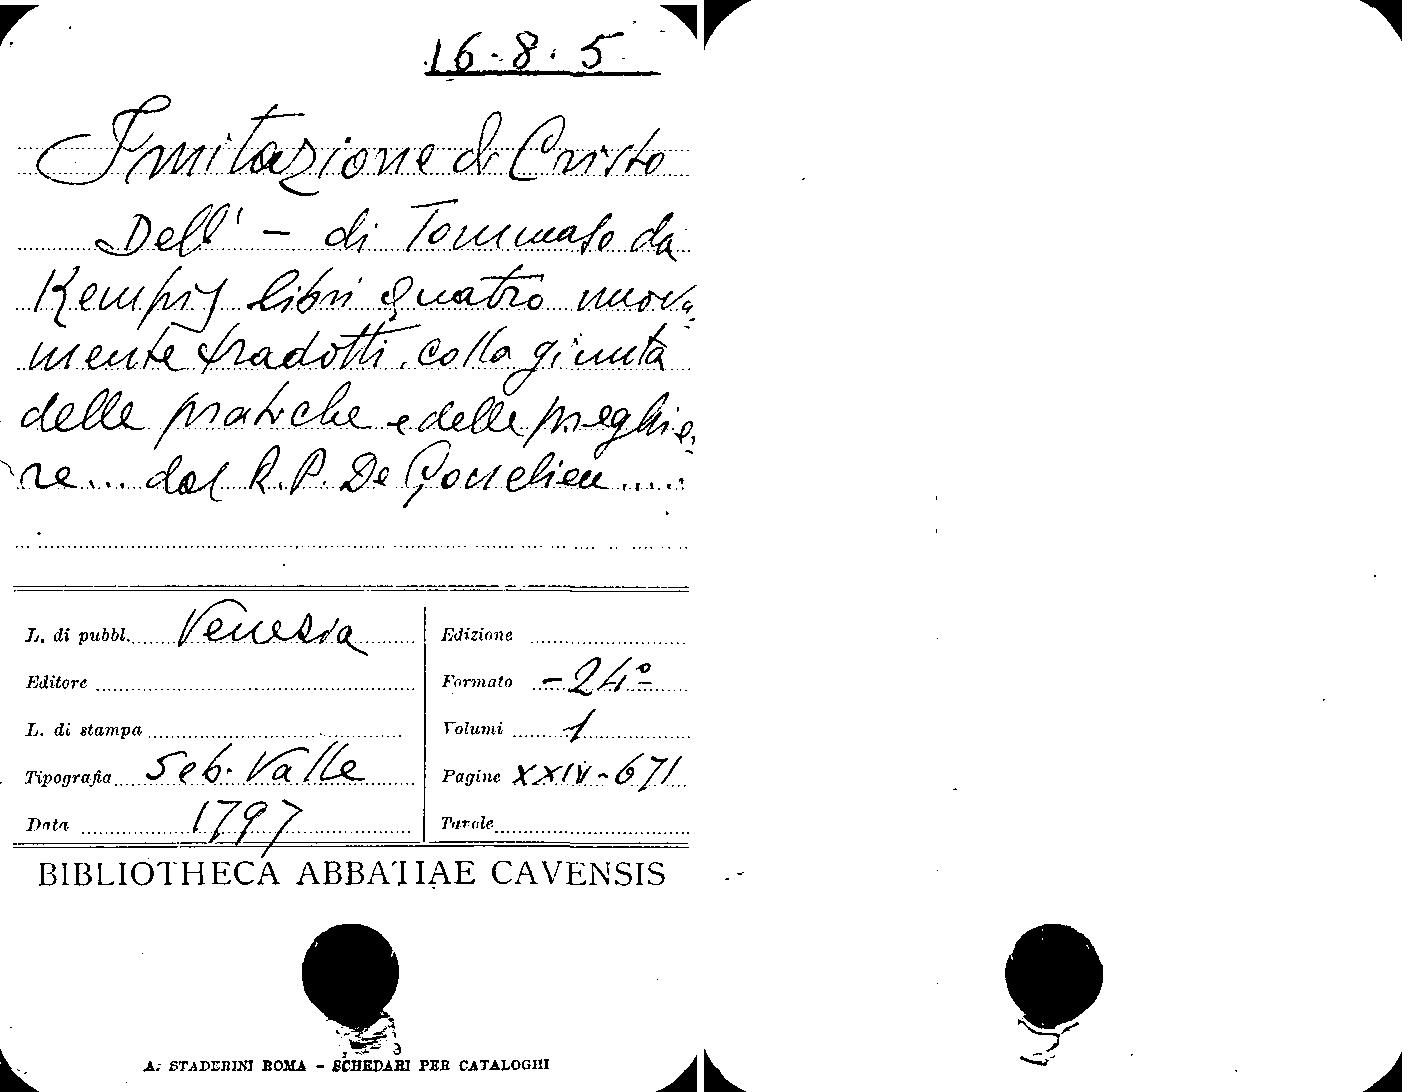 16.8.5
Imitazione di Cristo
Dell' - di Tommaso da
Kempis libri quatro nuova
mente tradotti, colla giunta
delle pratiche e delle preghie
re... dal R. P. De Gonnelieu.....
L. di pubbl. Venezia
Editore
L. di stampa
Tipografia Seb. Valle
Data 1797
Edizione
Formato -24º
Volumi 1
Pagine XXIV-671
Tavole
BIBLIOTHECA ABBATIAE CAVENSIS
A. STADERINI ROMA - SCHEDARI PER CATALOGHI